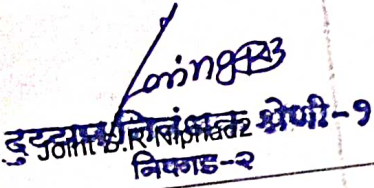 दुय्यम निबंधक श्रेणी-१
Joint S.R Niphad2
निफाड-२